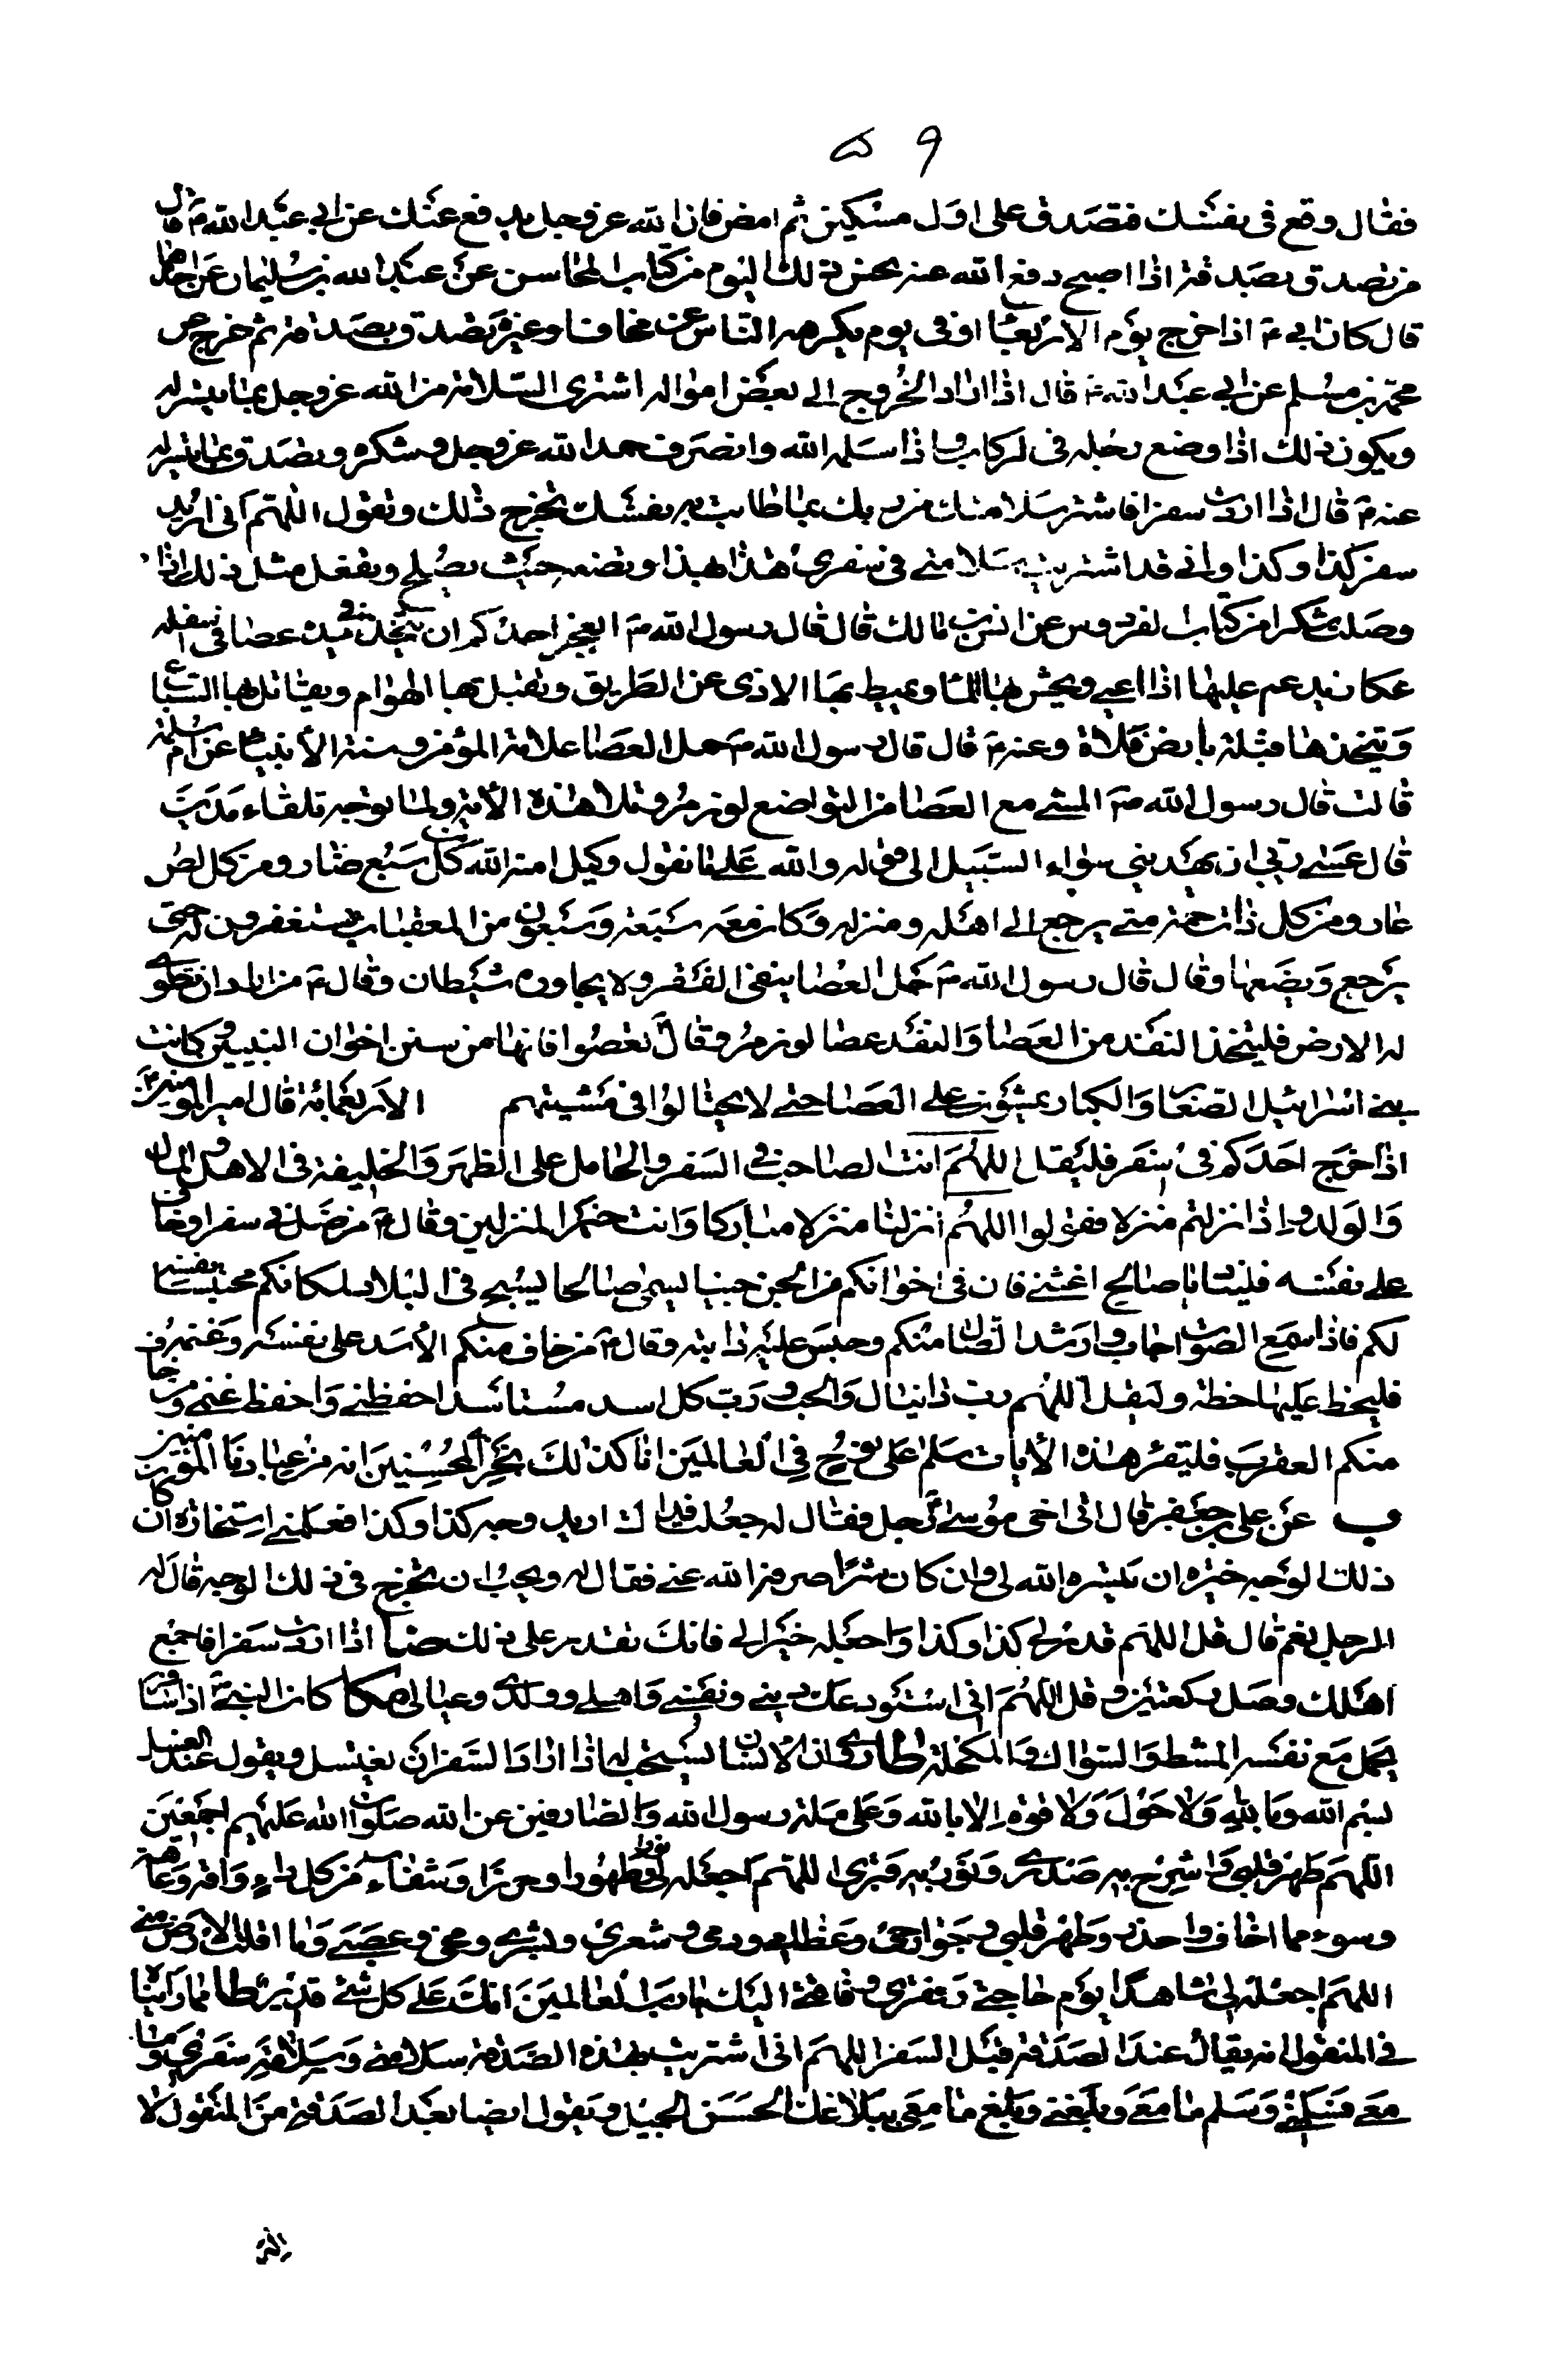 ٥٩
فقال وقع فى نفسك فتصدق على اول مسكين ثم امض فان الله عز وجل يدفع عنك عن ابي عبد الله ع قال
من تصدق بصدقة اذا اصبح دفع الله عنه نحس ذلك اليوم من كتاب المحاسن عن عبد الله بن سليمان عن احدهما
قال كان ابي ع اذا خرج يوم الاربعا او فى يوم يكرهه الناس من محاق او غيره تصدق بصدقة ثم خرج عن
محمد بن مسلم عن ابي عبد الله ع قال اذا اراد الخروج الى بعض امواله اشترى السلامة من الله عز وجل بما تيسر له
ويكون ذلك اذا وضع رجله فى الركاب واذا سلمه الله وانصرف حمد الله عز وجل وشكره وتصدق بما تيسر له
عنه ع قال اذا اردت سفرا فاشتر سلامتك من ربك بما طابت به نفسك ثم تخرج ذلك وتقول اللهم انى اريد
سفر كذا وكذا وانى قد اشتريت سلامتى فى سفرى هذا بهذا وتضعه حيث يصلح وتفعل مثل ذلك اذا
وصلت شكرا من كتاب الفردوس عن انس بن مالك قال قال رسول الله ص ايعجز احدكم ان يتخذ فى يده عصا فى اسفله
عكاز يدعم عليها اذا اعيى ويحش بها الماء ويميط بها الاذى عن الطريق ويقتل بها الهوام ويقاتل بها السباع
ويتخذها قبلة بارض فلاة وعنه ع قال قال رسول الله ص حمل العصا علامة المؤمن وسنة الانبياء عن ام سلمة
قالت قال رسول الله ص المشى مع العصا من التواضع لو نزمر وتلا هذه الاية ولما توجه تلقاء مدين
قال عسى ربى ان يهدينى سواء السبيل الى قوله والله على ما نقول وكيل امنه الله من كل سبع ضار ومن كل لص
عاد ومن كل ذات حمة حتى يرجع الى اهله ومنزله وكان معه سبعة وسبعون من المعقبات يستغفرون له حتى
يرجع ويضعها وقال قال رسول الله ص حمل العصا ينفى الفقر ولا يجاوره شيطان وقال ع من اراد ان تطوى
له الارض فليتخذ النقد من العصا والنقد عصا لوز مر وقال تعصوا فانها من سنن اخوان النبيين وكانت
بنى اسرائيل الصغار والكبار يمشون على العصا حتى لا يختالوا فى مشيتهم الاربعمائة قال امير المومنين ع
اذا خرج احدكم فى سفر فليقل اللهم انت الصاحب فى السفر والحامل على الظهر والخليفة فى الاهل والمال
والولد واذا نزلتم منزلا فقولوا اللهم انزلنا منزلا مباركا وانت خير المنزلين وقال ع من ضل فى سفر او خاف
على نفسه فليناد يا صالح اغثنى فان فى اخوانكم من الجن جنيا يسمى صالحا يسيح فى البلاد لمكانكم محتسبا نفسه
لكم فاذا سمع الصوت اجاب وارشد الضال منكم وحبس عليه دابته وقال ع من خاف منكم الاسد على نفسه وغنمه
فليخط عليها خطة وليقل اللهم رب دانيال والجب ورب كل اسد مستاسد احفظنى واحفظ غنمى ومن خاف
منكم العقرب فليقرء هذه الايات سلم على نوح فى العالمين انا كذلك نجزى المحسنين انه من عبادنا المؤمنين
ب عن على بن جعفر قال اتى اخى موسى ع رجل فقال له جعلت فداك اريد وجه كذا وكذا فعلمنى استخارة ان كان
ذلك الوجه خيره ان ييسره الله لى وان كان شرا صرفه الله عنى فقال له ويجب ان تخرج فى ذلك الوجه قال له
الرجل نعم قال قل اللهم قدر لى كذا وكذا واجعله خيرا لى فانك تقدر على ذلك ضا اذا اردت سفرا فاجمع
اهلك وصل ركعتين وقل اللهم انى استودعك دينى ونفسى واهلى وولدى وعيالى مكا كان النبى ص اذا سافر
يحمل مع نفسه المشط والسواك والمكحلة طا روى ان الانسان يستحب له اذا اراد السفر ان يغتسل ويقول عند الغسل
بسم الله وبالله ولا حول ولا قوة الا بالله وعلى ملة رسول الله والصادقين عن الله صلوات الله عليهم اجمعين
اللهم طهر قلبى واشرح به صدرى ونور به قبرى اللهم اجعله لى نورا وطهورا وحرزا وشفاء من كل داء وافة وعاهة
وسوء مما اخاف واحذر وطهر قلبى وجوارحى وعظامى ودمى وشعرى وبشرى ومخى وعصبى وما اقلت الارض منى
اللهم اجعله لى شاهدا يوم حاجتى وفقرى وفاقتى اليك يا رب العالمين انك على كل شئ قدير طا مما رايناه
فى المنقول انه يقال عند الصدقة قبل السفر اللهم انى اشتريت بهذه الصدقة سلامتى وسلامة سفرى وما
معى فسلمنى وسلم ما معى وبلغنى وبلغ ما معى ببلاغك الحسن الجميل ويقول ايضا بعد الصدقة من المنقول لا